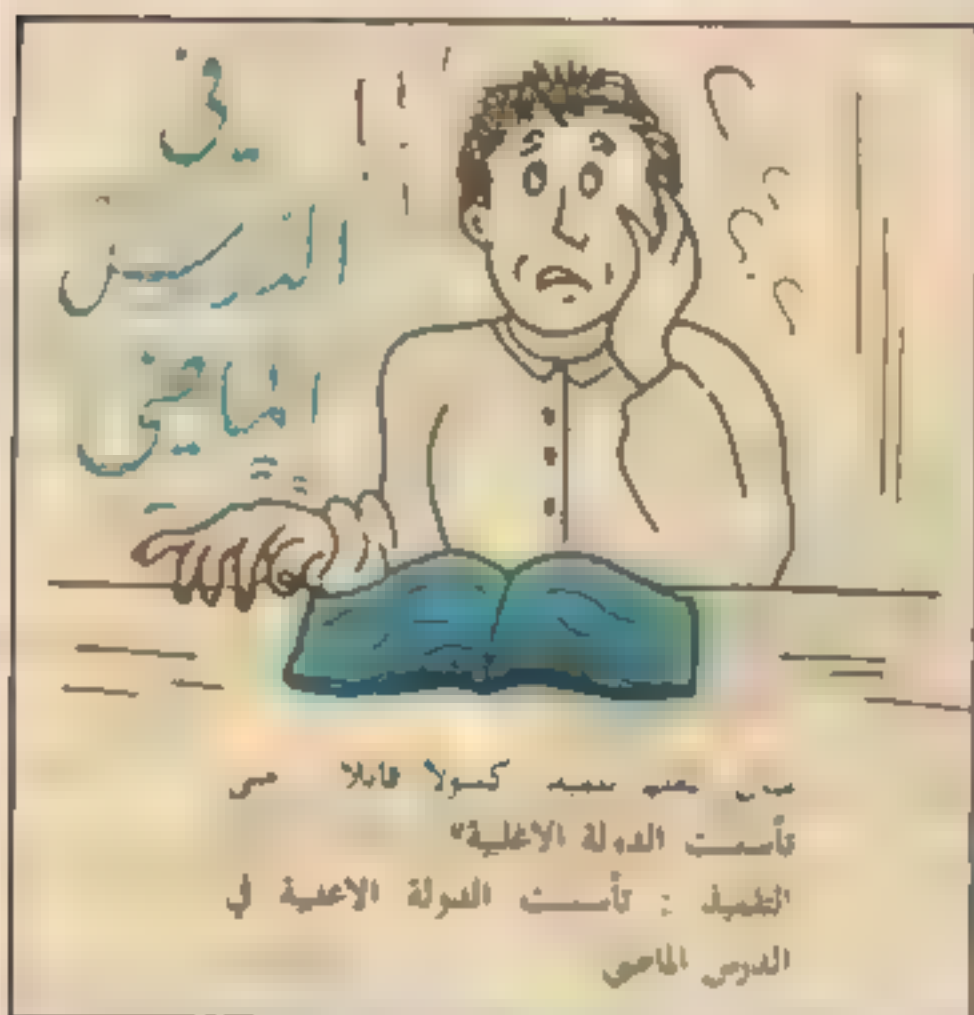 في
الدرس
الماضي
كسولا قائلا
تأسست الدولة الاغلبية"
التلميذ : تأسست الدولة الاغلبية في
الدرس الماضي